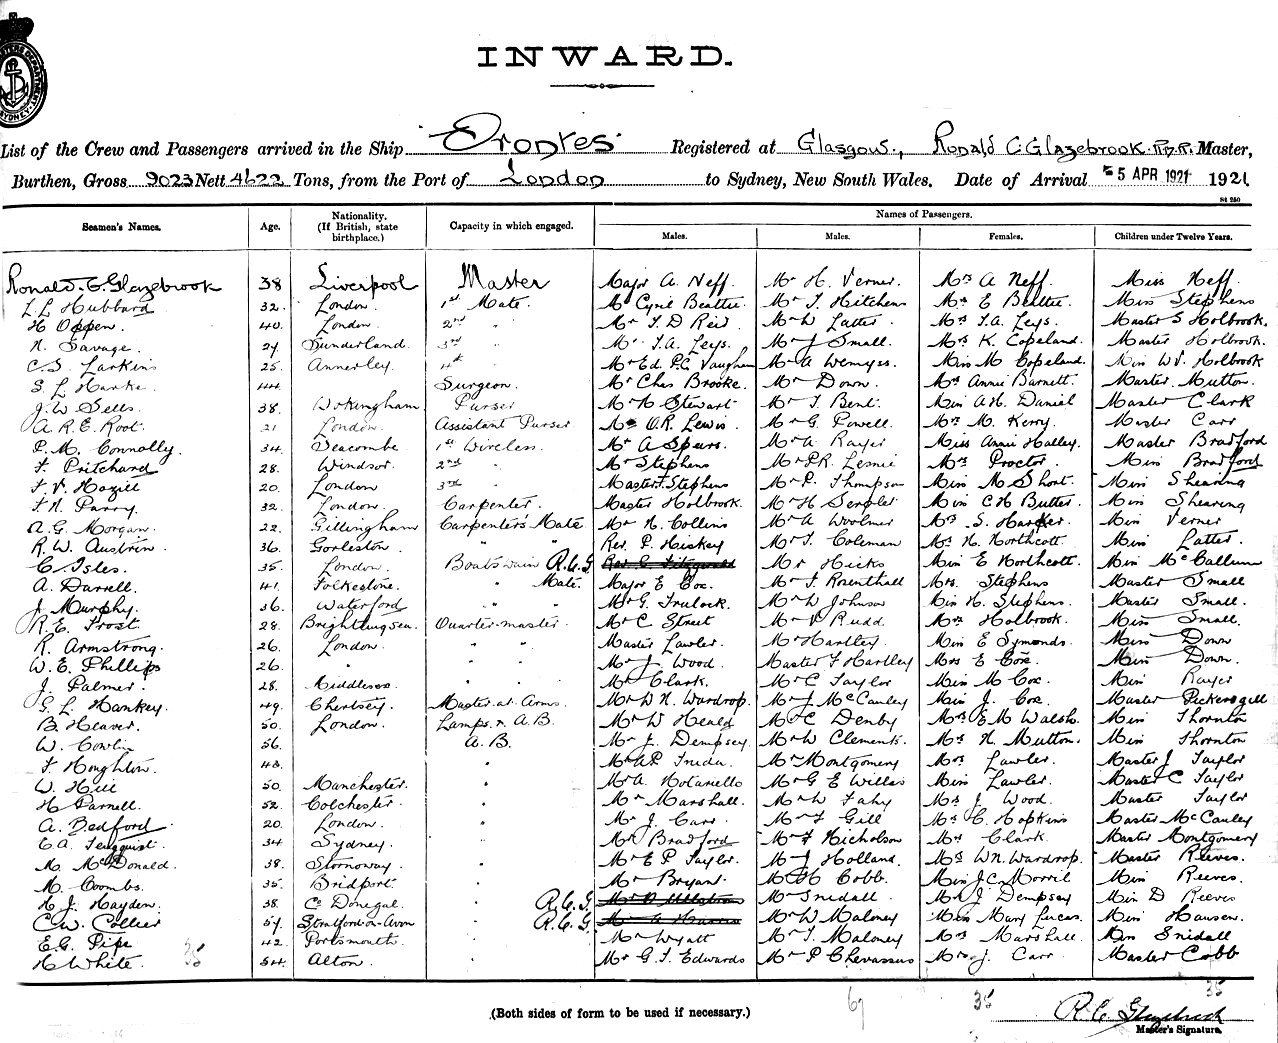 INWARD.
List of the Crew and Passengers arrived in the Ship "Orontes" Registered at Glasgow, Ronald C Glazebrook R.N.R. Master,
Burthen, Gross 9023 Nett 4622 Tons, from the Port of London to Sydney, New South Wales. Date of Arrival 5 APR 1921 1921
St 250
Seamen's Names. Age. Nationality. (If British, state birthplace.) Capacity in which engaged. Names of Passengers.
Males. Males. Females. Children under Twelve Years.
Ronald G. Glazebrook 38 Liverpool Master Major A. Neff Mr H. Verner. Mrs A Neff. Miss Neff
L L Hubbard 32. London. 1st Mate. Mr Cyril Beattie Mr T. Hitchens Mrs E Beattie. Miss Stephens
H Oppen. 40. London. 2nd " Mr T. D Reid Mr W Latter Mrs T.A. Leys. Master S Holbrook.
N. Savage. 24. Sunderland. 3rd " Mr T.A. Leys. Mr J Small. Mrs K. Copeland. Master Holbrook.
C S Larkins 25. Annerley. 4th " Mr Ed. P.C. Vaughan Mr A Wemyss. Miss M Copeland. Miss W V. Holbrook
S L Hanke. 44. Surgeon. Mr Chas Brooke. Mr Down. Mrs Annie Barnett. Master Mutton.
J. W Sells. 38. Wokingham Purser Mr N Stewart Mr T. Bent. Miss A H. Daniel Master Clark
A R. E. Root. 21 London. Assistant Purser O.R. Lewis Mr G Powell Mrs M. Kerry. Master Carr
P. M. Connolly. 34. Seacombe 1st Wireless. Mr A Spurs. Mr A Rayer Miss Annie Halley. Master Bradford
F. Pritchard 28. Windsor. 2nd " Mr Stephens Mr P.R. Leslie Mrs Proctor. Miss Bradford
F. V. Hazell 20. London 3rd " Master T. Stephens Mr P. Thompson Miss M Short. Miss Shearing
F. N. Parry. 32. London. Carpenter. Master Holbrook. Mr H Miss C H Butter. Miss Shearing
A G. Morgan. 22. Gillingham Carpenter's Mate Mr H. Collins Mr A Woolmer Mrs S. Harker. Miss Verner
R. W. Austrin. 36. Gorleston. " " Rev. P. Hickey Mr T. Coleman Mrs H. Northcott Miss Latter.
C Isles. 35. London. Boatswain R.C.G Rev G Fitzgerald Mr Hicks Miss E Northcott. Miss McCallum
A. Darrell. 41. Folkestone. " Mate. Major E Cox. Mr T. Rosenthall Mrs. Stephens Master Small
J Murphy. 36. Waterford " " Mr G. Trulock. Mr W Johnson Miss H. Stephens. Master Small.
R. E. Frost 28. Brightlingsea. Quarter-master. Mr C Street Mr V Rudd Mrs Holbrook. Miss Small.
R. Armstrong. 26. London. " " Master Lawler. Mr Hartley. Miss E Symonds. Miss Down
W. E. Phillips 26. " " " Mr J. Wood. Master F Hartley Mrs E Cox. Miss Down.
J. Palmer. 28. Middlesex. " " Mr Clark. Mr C Taylor Miss M Cox. Miss Rayer
G. L. Hankey. 49. Chertsey. Master-at-Arms. Mr W N. Wardrop. Mr J McCauley Miss J. Cox. Master Pickersgill
B. Heaver. 50. London. Lamps. & A.B. Mr W Heald Mr C Denby Mrs E M Walsh. Miss Thornton
W. Cowlin 56. A. B. Mr J. Dempsey. Mr W Clements. Mrs H. Mutton. Miss Thornton
F. Houghton. 43. " Mr A P. Mr Montgomery Mrs Lawler. Master J Taylor
W. Hill 50. Manchester. " Mr A. Hotariello Mr G E Willis Miss Lawler. Master C Taylor
H Parnell. 52. Colchester. " Mr Marshall. Mr W Fahy Mrs J Wood. Master Taylor
A. Bedford 20. London. " Mr J. Carr. Mr F Gill Mrs C. Hopkins Master McCauley
E A. Tengquist. 34 Sydney. " Mr Bradford Mr F Nicholson Mrs Clark. Master Montgomery
M. McDonald. 38. Stornoway. " Mr E P. Taylor. Mr J Holland. Mrs W N. Wardrop. Master Reeves.
M Coombs. 35. Bridport. " Mr Bryant. Mr H Cobb. Miss J.C. Morril Miss Reeves.
H. J. Hayden. 38. Co Donegal. " R.C.G. Mr Snidall. Mrs J Dempsey Miss D Reeves
C. W. Collier 54. Stratford-on-Avon R.C.G. Mr A Harris Mr W Maloney Miss Mary Lucas. Miss Hansen.
E G. Pipe 42. Portsmouth. " Mr Wyatt Mr T. Maloney Mrs Marshall. Miss Snidall
H White. 35 54. Alton. " Mr G. T. Edwards Mr P Chevassus Mrs J. Carr. Master Cobb
(Both sides of form to be used if necessary.) 67 35 35
R. C. Glazebrook
Master's Signature.